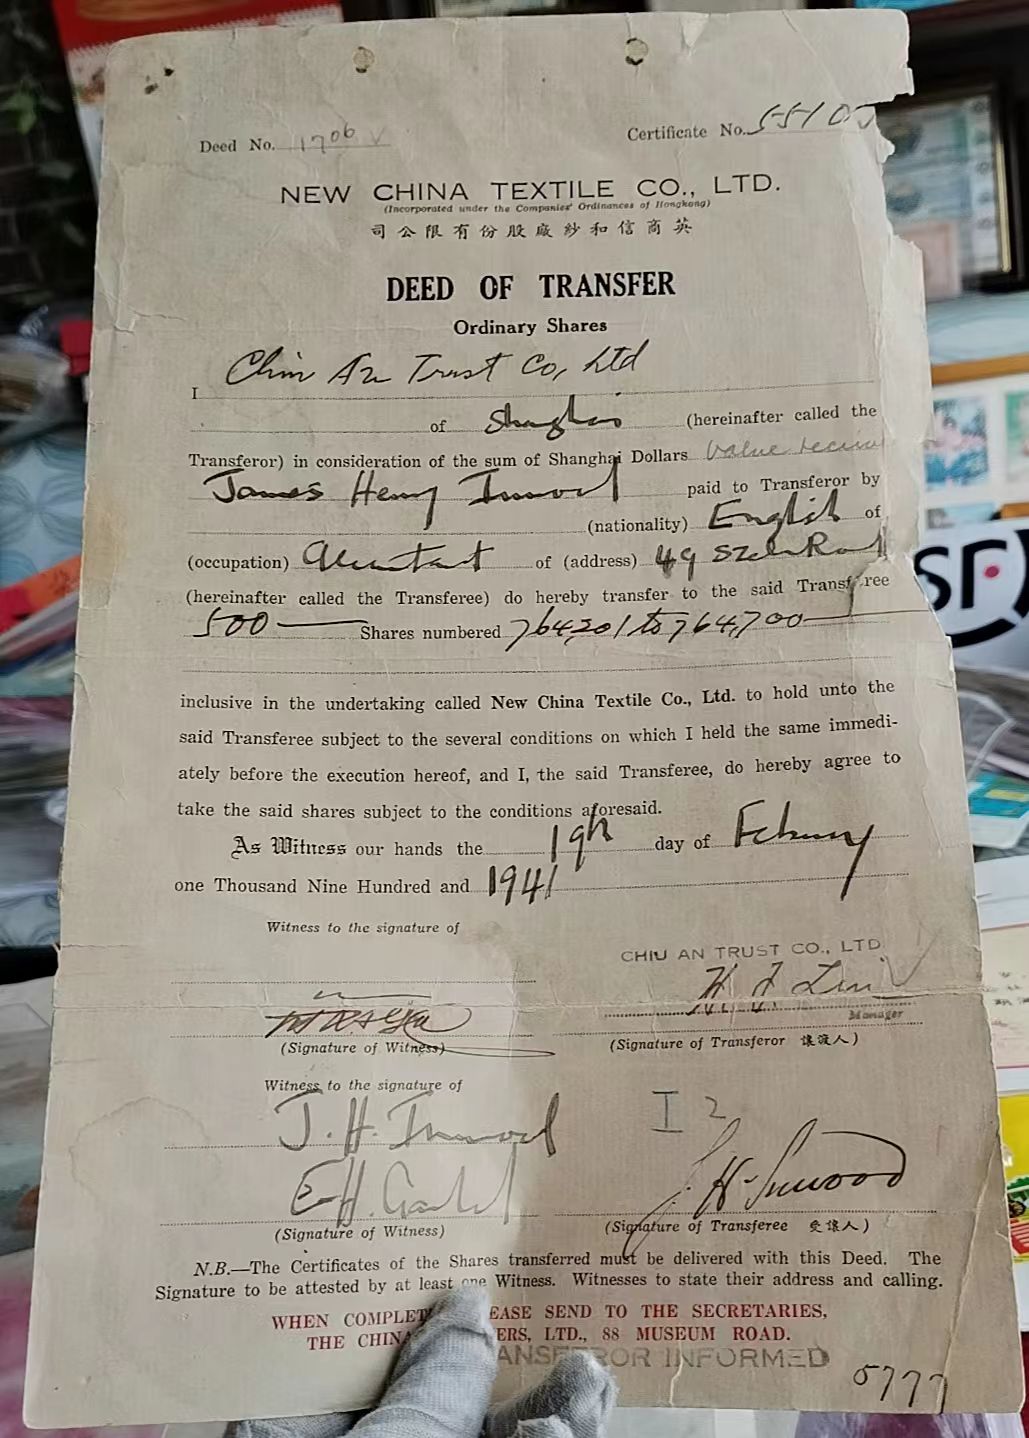 Deed No. 1706 Certificate No. 5510
NEW CHINA TEXTILE CO., LTD.
(Incorporated under the Companies' Ordinances of Hongkong)
司公限有份股廠紗和信商英
DEED OF TRANSFER
Ordinary Shares
I Chiu An Trust Co, Ltd
of Shanghai (hereinafter called the
Transferor) in consideration of the sum of Shanghai Dollars Value
James Henry Inwood paid to Transferor by
(nationality) English of
(occupation) of (address) 49
(hereinafter called the Transferee) do hereby transfer to the said Transferee
500 Shares numbered 764,201 to 764,700
inclusive in the undertaking called New China Textile Co., Ltd. to hold unto the
said Transferee subject to the several conditions on which I held the same immedi-
ately before the execution hereof, and I, the said Transferee, do hereby agree to
take the said shares subject to the conditions aforesaid.
As Witness our hands the 19th day of February
one Thousand Nine Hundred and 1941
Witness to the signature of
CHIU AN TRUST CO., LTD.
Manager
(Signature of Witness) (Signature of Transferor 讓渡人)
Witness to the signature of
J. H. Inwood I 2
E H. J. H. Inwood
(Signature of Witness) (Signature of Transferee 受讓人)
N.B.—The Certificates of the Shares transferred must be delivered with this Deed. The
Signature to be attested by at least one Witness. Witnesses to state their address and calling.
WHEN COMPLET EASE SEND TO THE SECRETARIES,
THE CHINA ERS, LTD., 88 MUSEUM ROAD.
ANSFEROR INFORMED
5777
SF